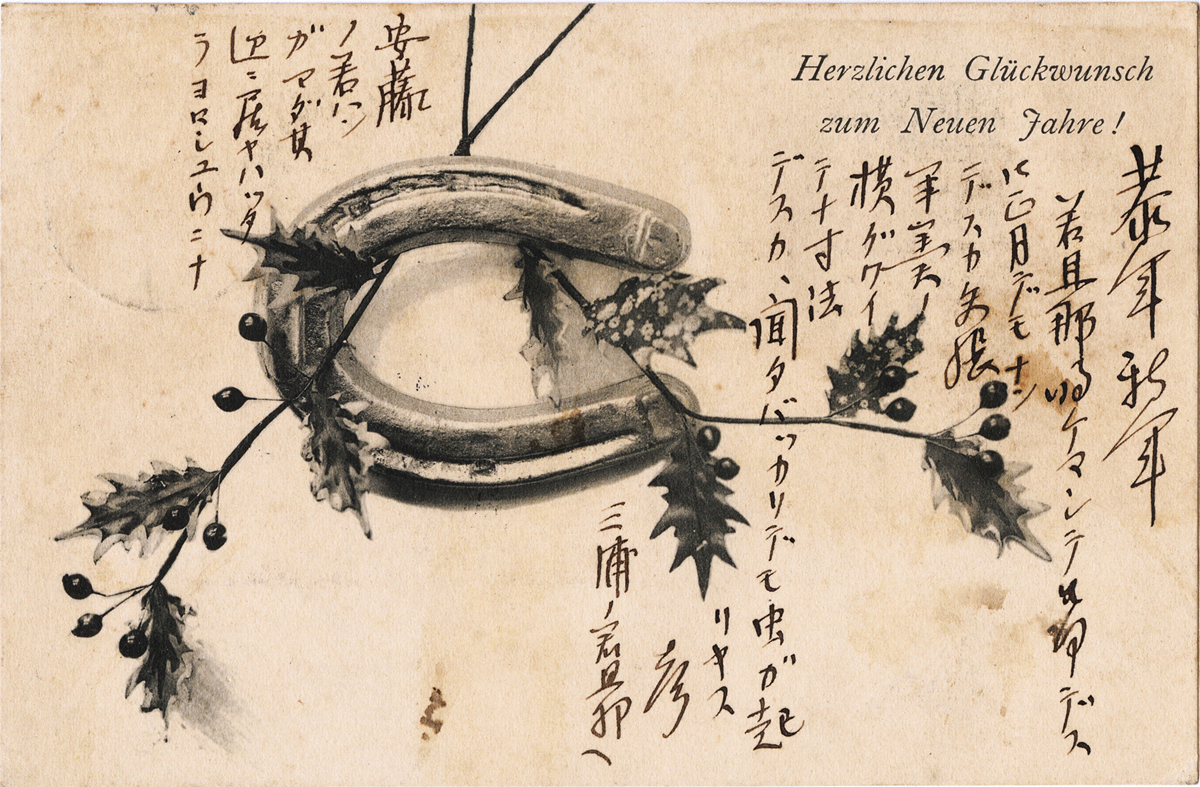 Herzlichen Glückwunsch
zum Neuen Jahre!
恭年新年
若旦那 ケマンテ デス
正月デモナシ
デスカ矢張
軍実ノ
横グワイ
テナ寸法
デスカ、聞タバッカリデモ虫ガ起
リヤス
彦
三浦ノ若旦那へ
安藤
ノ若ハン
ガマダ其
辺ニ居ヤハッタ
ラヨロシユウニナ